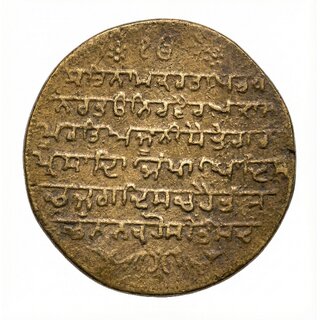 ੴ
ਸਤਿਨਾਮਕਰਤਾਪਰਖ
ਨਰਭਓਨਿਰਵੈਰਅਕਾਲ
ਮੂਰਤਿਅਜੂਨੀਸੈਭੰਗੁਰ
ਪ੍ਰਸਾਦਿ ਜਪਆਦਿਸ
ਚਜੁਗਾਦਿਸਚਹੈਭੀਸ
ਚਨਾਨਕਹੋਸੀਭੀਸਚ